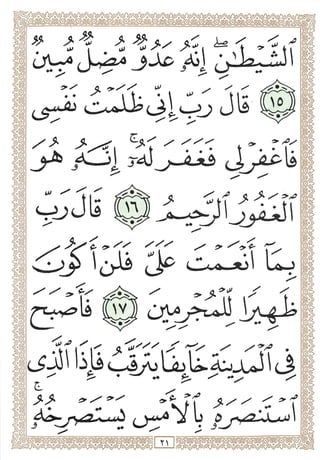 ٱلشَّيۡطَٰنِۖ إِنَّهُۥ عَدُوّٞ مُّضِلّٞ مُّبِينٞ
١٥ قَالَ رَبِّ إِنِّي ظَلَمۡتُ نَفۡسِي
فَٱغۡفِرۡ لِي فَغَفَرَ لَهُۥٓۚ إِنَّهُۥ هُوَ
ٱلۡغَفُورُ ٱلرَّحِيمُ ١٦ قَالَ رَبِّ
بِمَآ أَنۡعَمۡتَ عَلَيَّ فَلَنۡ أَكُونَ
ظَهِيرٗا لِّلۡمُجۡرِمِينَ ١٧ فَأَصۡبَحَ
فِي ٱلۡمَدِينَةِ خَآئِفٗا يَتَرَقَّبُ فَإِذَا ٱلَّذِي
ٱسۡتَنصَرَهُۥ بِٱلۡأَمۡسِ يَسۡتَصۡرِخُهُۥۚ
٢١